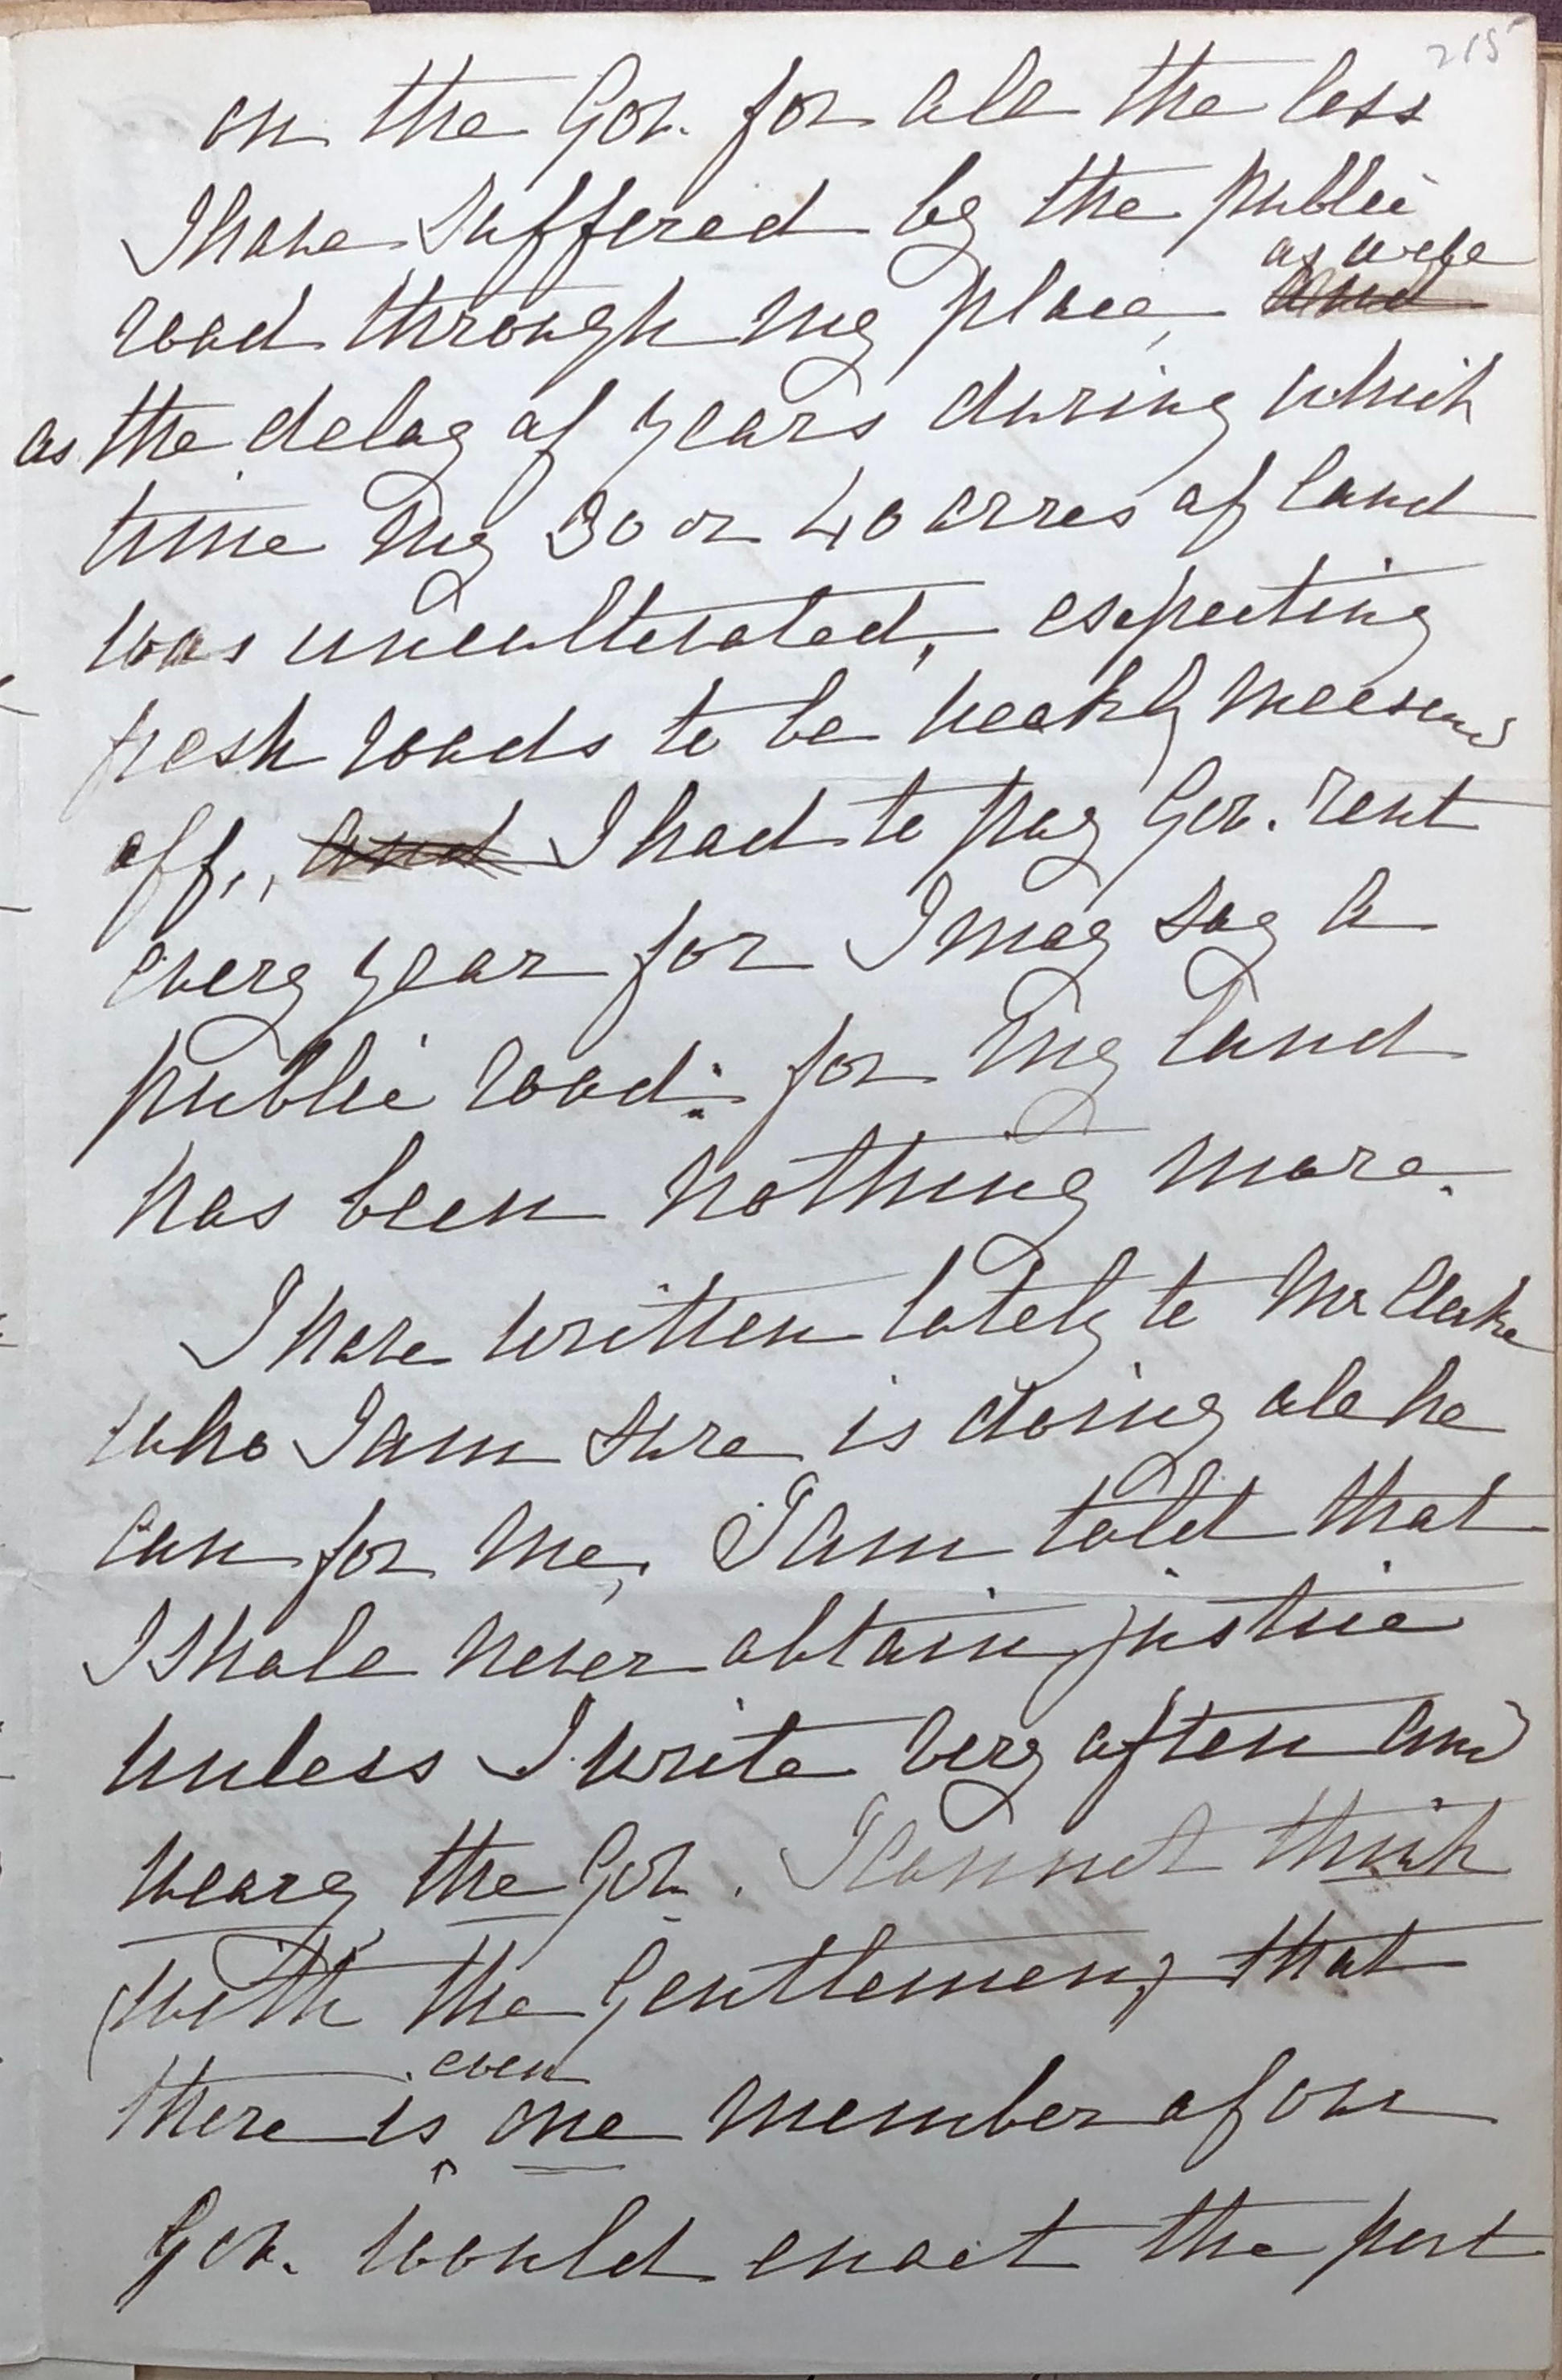 215
on the Gov. for all the loss
I have suffered by the public
as well
road through my place, and
as the delay of years during which
time my 30 or 40 acres of land
was uncultivated, expecting
fresh roads to be weekly
off,, and I had to pay Gov. rent
every year for I may say a
public road: for my land
has been nothing more.
I have written lately to Mr Clarke
who I am sure is doing all he
can for me, I am told that
I shall never obtain justice
unless I write very often and
weary the Gov. I cannot think
with the Gentlemen, that
even
there is one member of our
Gov. would enact the part